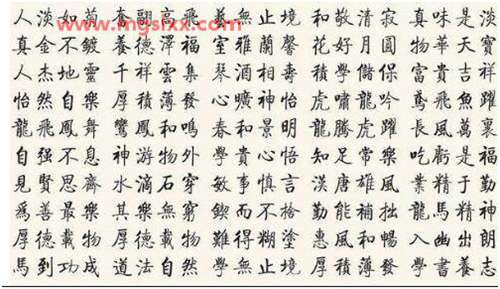 www.mgslxx.com
人淡如菊 翻高飛 藝無止境 和敬清寂 真味是淡
真金不鍍 養德澤福 室雅蘭馨 花好月圓 物華天寶
人杰地靈 千祥雲集 琴酒相壽 積學儲保 富貴吉祥
怡然自樂 厚積薄發 心曠神怡 虎嘯龍吟 鳶飛魚躍
龍飛鳳舞 鸞鳳和鳴 春和景明 龍騰虎躍 長風萬裏
自强不息 神游物外 學貴心悟 知足常樂 吃虧是福
見賢思齊 水滴石穿 敏事慎言 漢唐雄風 業精于勤
爲善最樂 其樂無窮 鍥而不捨 勤能補拙 龍馬精神
厚德載物 厚德載物 難得糊塗 惠風和暢 入幽出朗
馬到功成 道法自然 學無止境 厚積薄發 學書養志